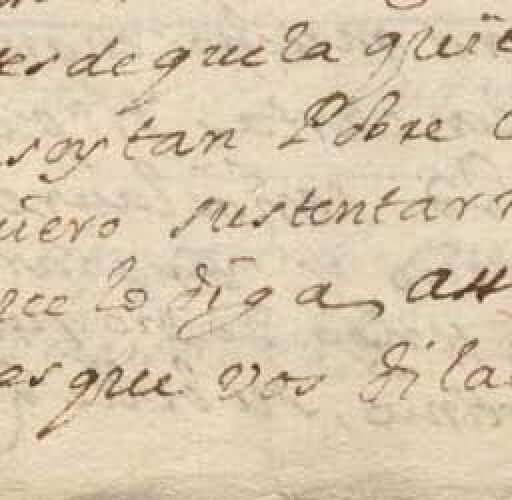 es de que la quie
soy tan Pobre
uero sustentar
ce lo diga, au
as que vos dila